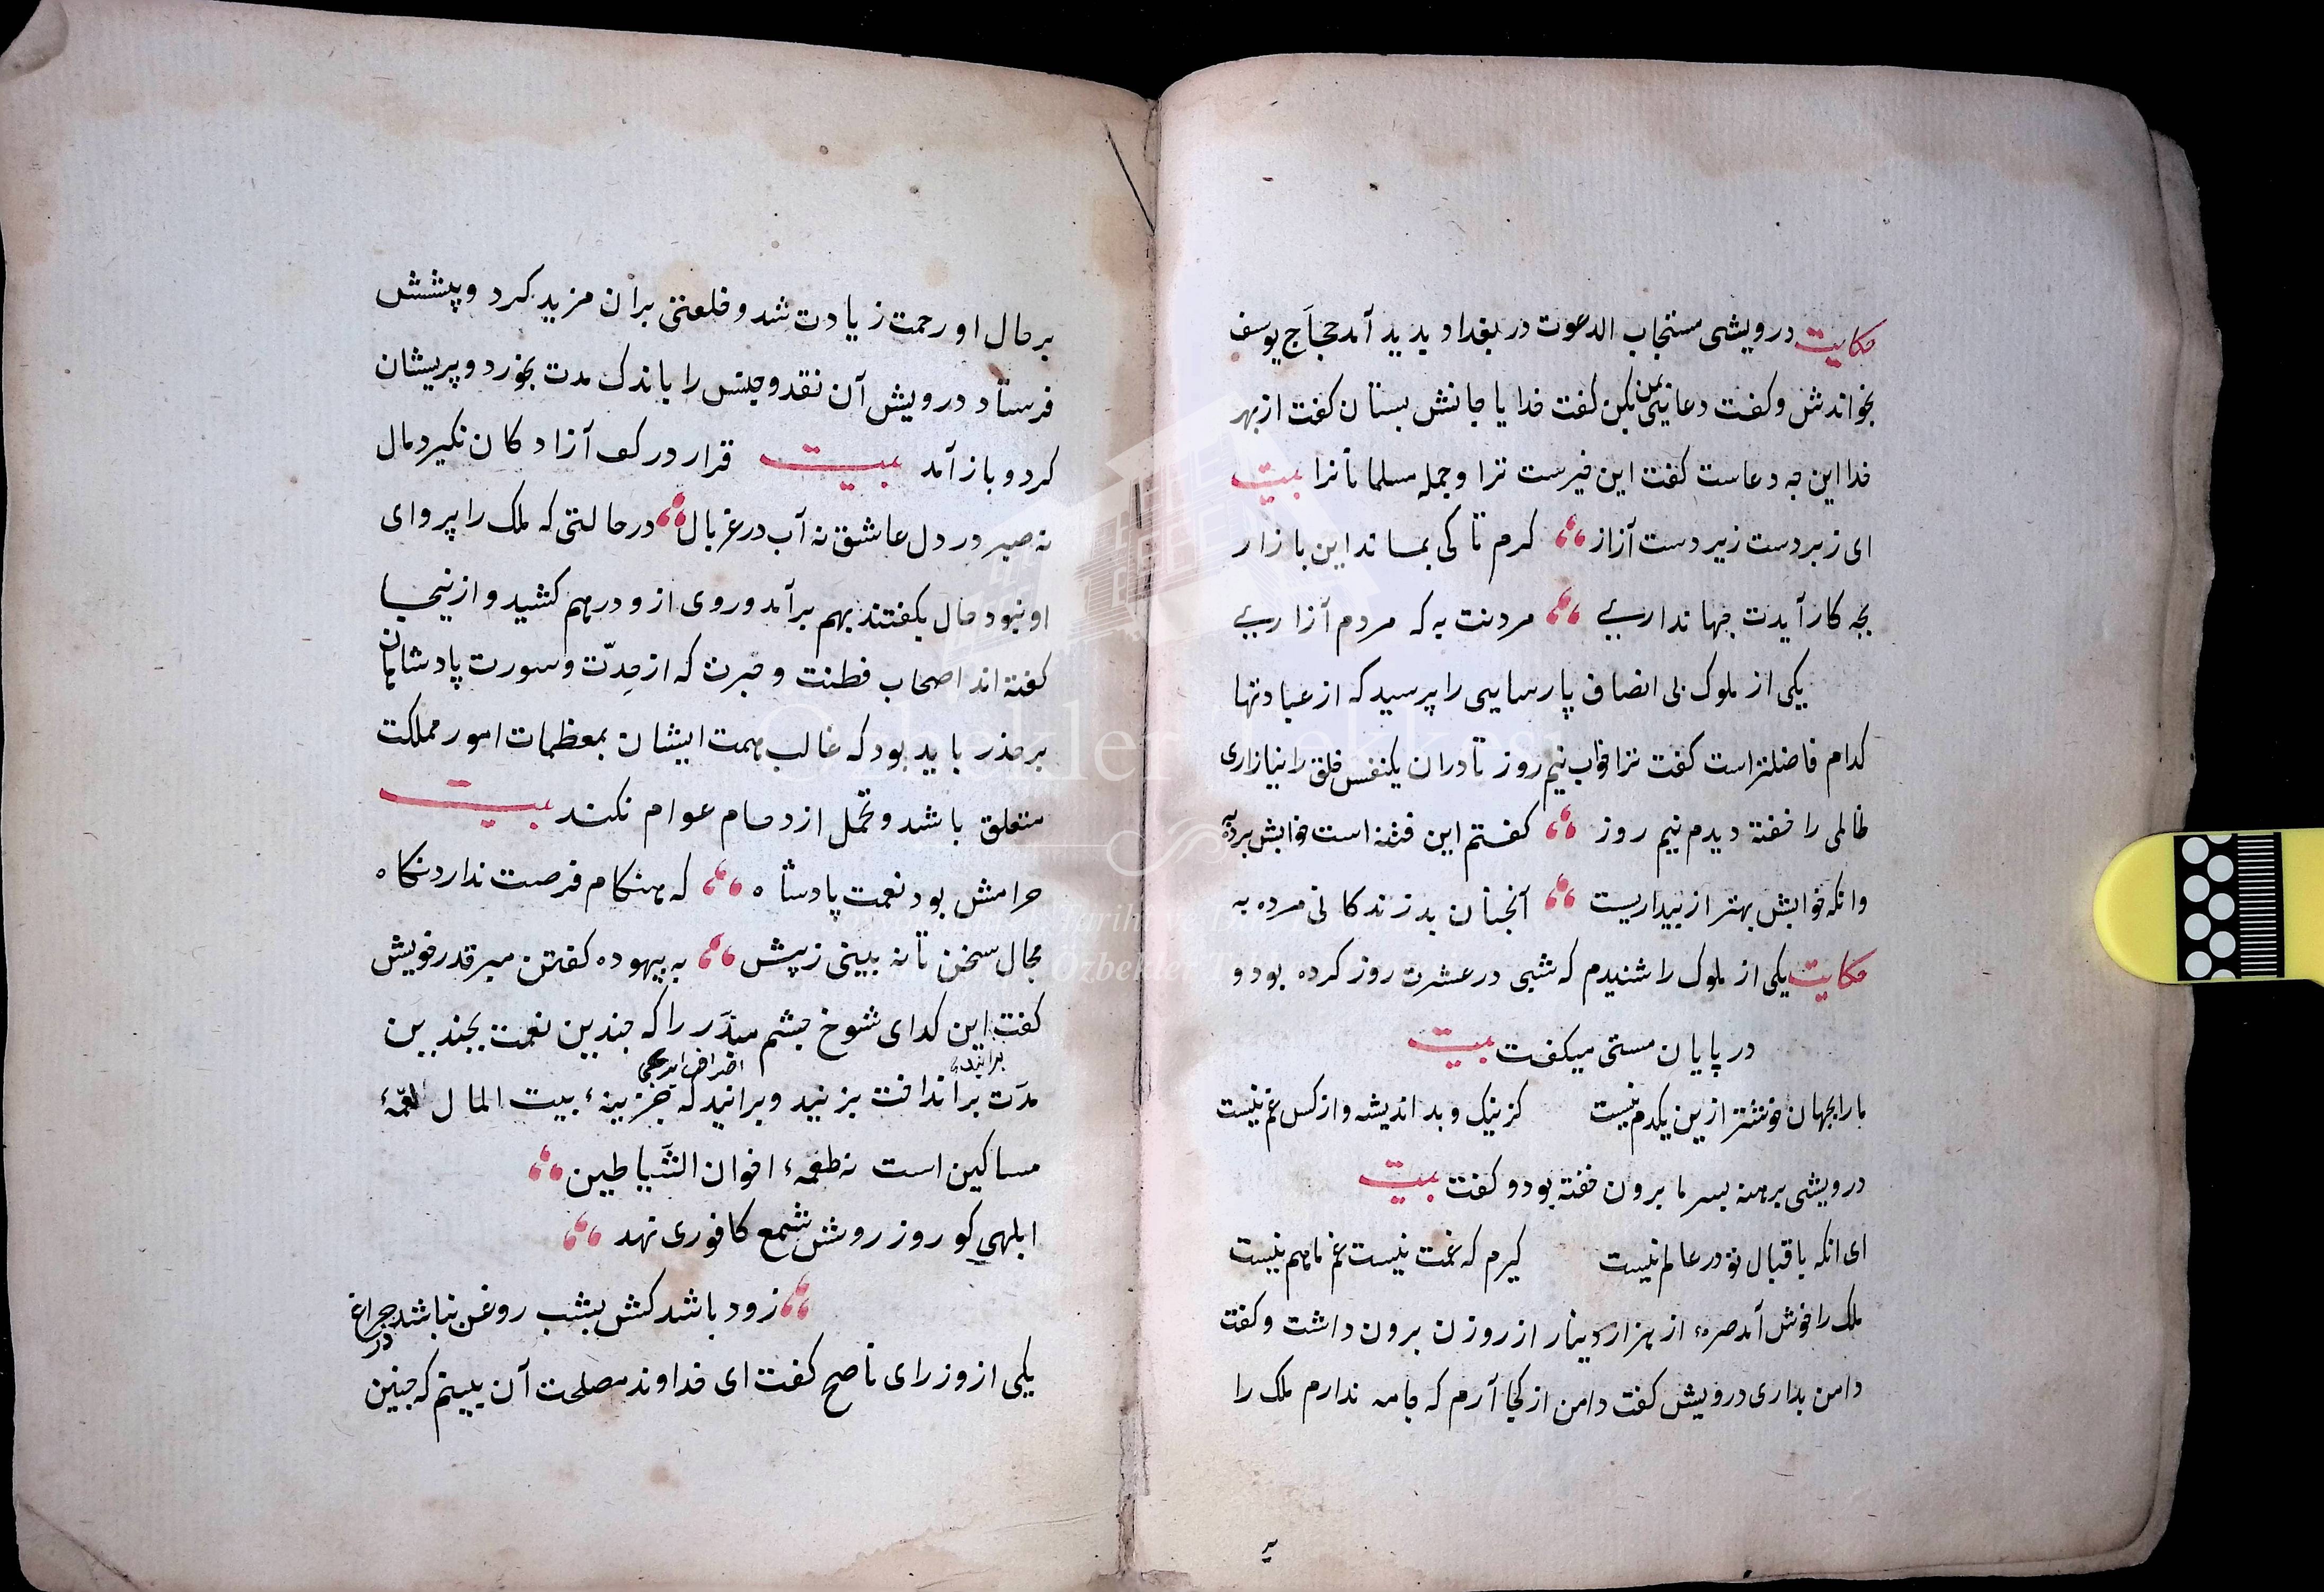 حکایت درویشی مستجاب الدعوت در بغداد پدید آمد حجّاج یوسف
بخواندش وکفت دعائی بمن بکن کفت خدایا جانش بستان کفت از بهر
خدا این چه دعاست کفت این خیرست ترا وجمله مسلمانانرا بیت
ای زبردست زیر دست آزار کرم تا کی بماند این بازار
بچه کار آیدت جهانداری مردنت به که مردم آزاری
یکی از ملوک بی انصاف پارسایی را پرسید که از عبادتها
کدام فاضلتر است کفت ترا خواب نیم روز تا دران یکنفس خلق را نیازاری
ظالمی را خفته دیدم نیم روز کفتم این فتنه است خوابش برده به
وانکه خوابش بهتر از بیداریست آنچنان بد زندکانی مرده به
حکایت یکی از ملوک را شنیدم که شبی در عشرت روز کرده بود و
در پایان مستی میکفت بیت
ما را بجهان خوشتر ازین یکدم نیست کز نیک و بد اندیشه و از کس غم نیست
درویشی برهنه بسرما برون خفته بود و کفت بیت
ای انکه باقبال تو در عالم نیست کیرم که غمت نیست غم ما هم نیست
ملک را خوش آمد صرهٔ از هزار دینار از روزن برون داشت وکفت
دامن بداری درویش کفت دامن از کجا آرم که جامه ندارم ملک را
بر حال او رحمت زیادت شد و خلعتی بران مزید کرد و پیشش
فرستاد درویش آن نقد و جنس را باندک مدت بخورد و پریشان
کرد و باز آمد بیت قرار در کف آزادکان نکیرد مال
نه صبر در دل عاشق نه آب در غربال در حالتی که ملک را پروای
او نبود حال بکفتند بهم برآمد و روی ازو درهم کشید و ازینجا
کفته اند اصحاب فطنت و خبرت که از حدّت و سورت پادشاهان
بر حذر باید بود که غالب همت ایشان بمعظمات امور مملکت
متعلق باشد و تحمل ازدحام عوام نکند بیت
حرامش بود نعمت پادشاه که هنکام فرصت ندارد نکاه
مجال سخن تا نه بینی ز پیش به بیهوده کفتن مبر قدر خویش
کفت این کدای شوخ چشم مبذّر را که چندین نعمت بچندین
مدّت برانداخت بزنید و برانید که خزینهٔ بیت المال لقمهٔ
مساکین است نه طعمهٔ اخوان الشّیاطین
ابلهی کو روز روشن شمع کافوری نهد
زود باشد کش بشب روغن نباشد در چراغ
یکی از وزرای ناصح کفت ای خداوند مصلحت آن بینم که چنین